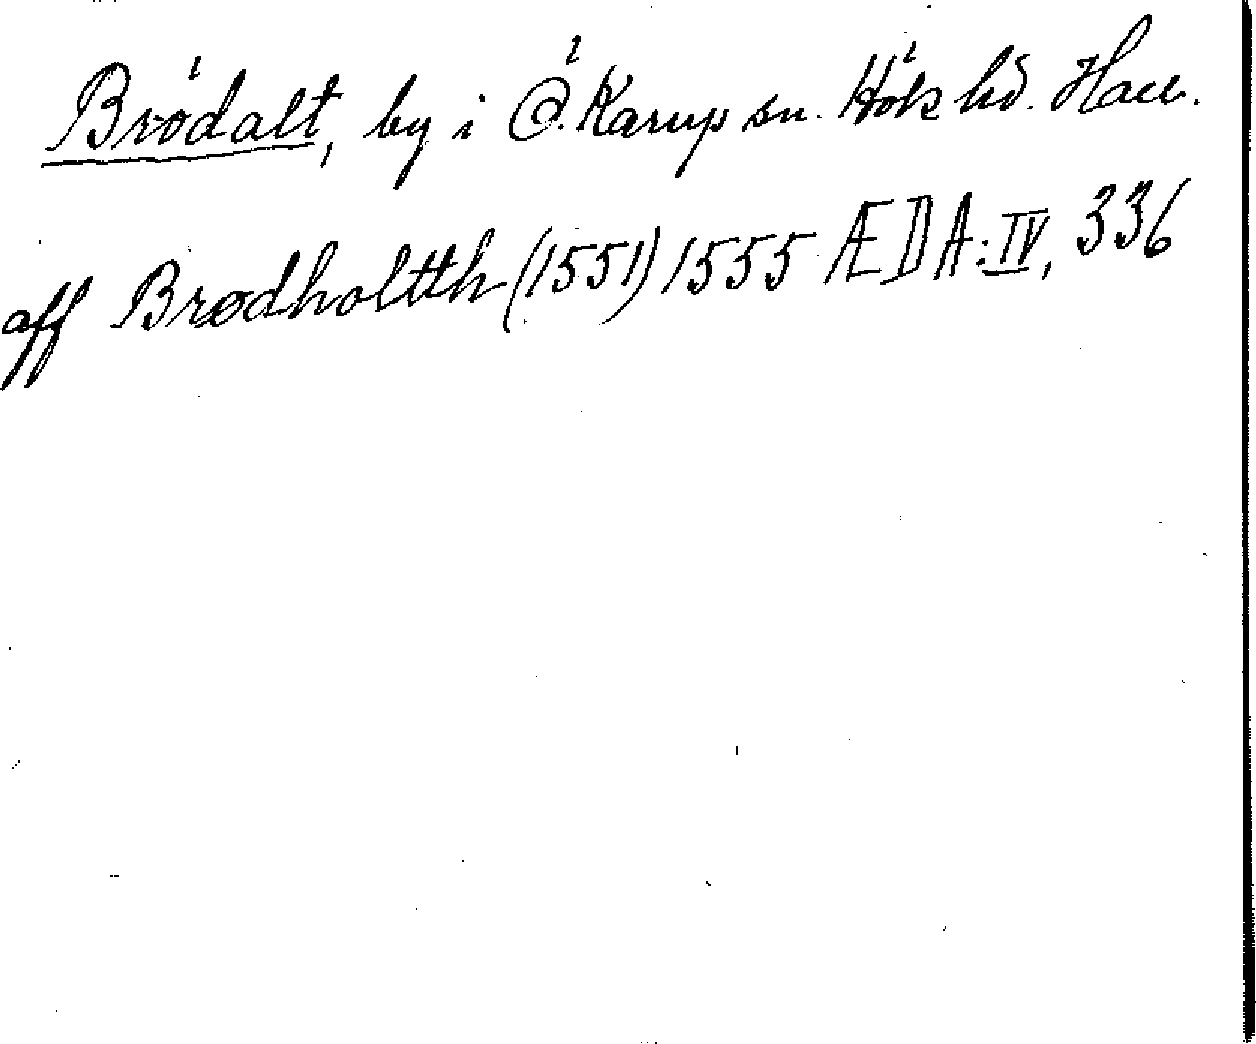 Brödalt, by i Ö. Karup sn. Höks hd. Hall.
aff Brødholtth (1551) 1555 ÆDA: IV, 336